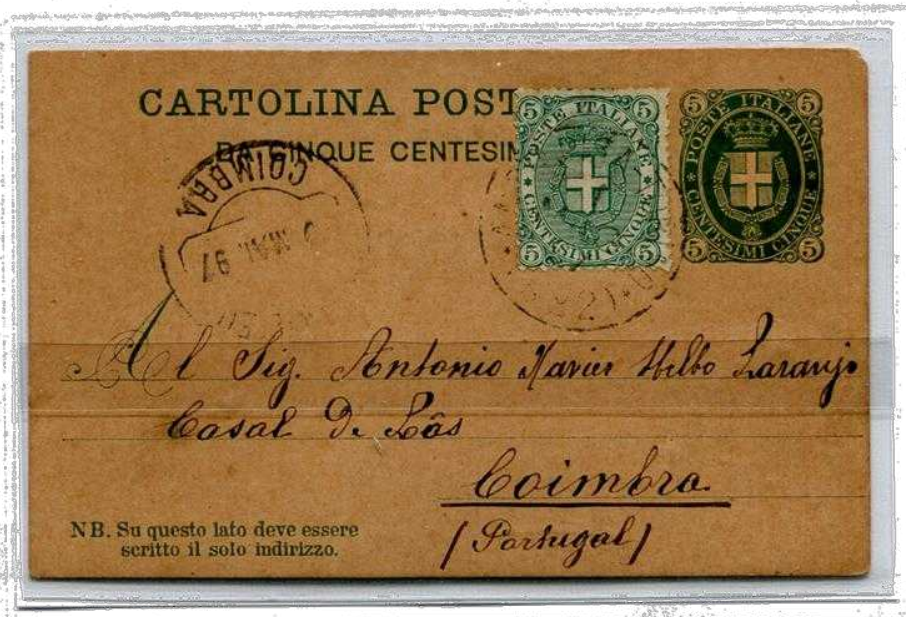 CARTOLINA POST
DA CINQUE CENTESIM
5 POSTE ITALIANE 5
5 CENTESIMI CINQUE 5
5 POSTE ITALIANE 5
5 CENTESIMI CINQUE 5
COIMBRA
MAI 97
Al Sig. Antonio Xavier Laranjo
Casal De Lâs
Coimbra
(Portugal)
NB. Su questo lato deve essere
scritto il solo indirizzo.